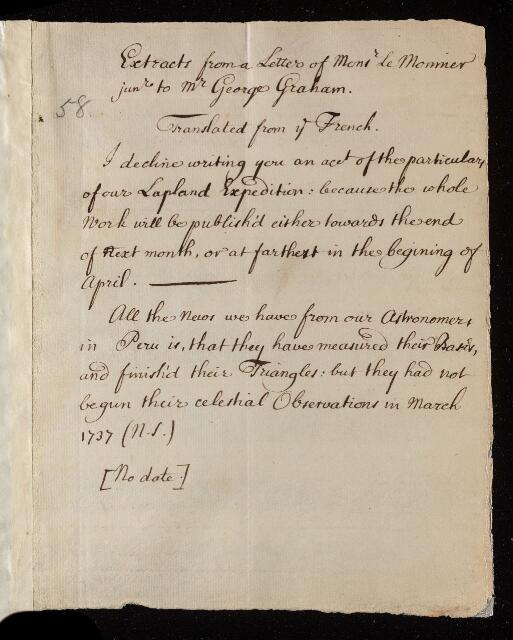 Extracts from a Letter of Monsr Le Monnier
junr to Mr George Graham.
58.
Translated from ye French.
I decline writing you an acct of the particulars
of our Lapland Expedition: because the whole
Work will be publish'd either towards the end
of next month, or at farthest in the begining of
April.
All the News we have from our Astronomers
in Peru is, that they have measured their Basis,
and finish'd their Triangles: but they had not
begun their celestial Observations in March
1737 (N.S.)
[No date]